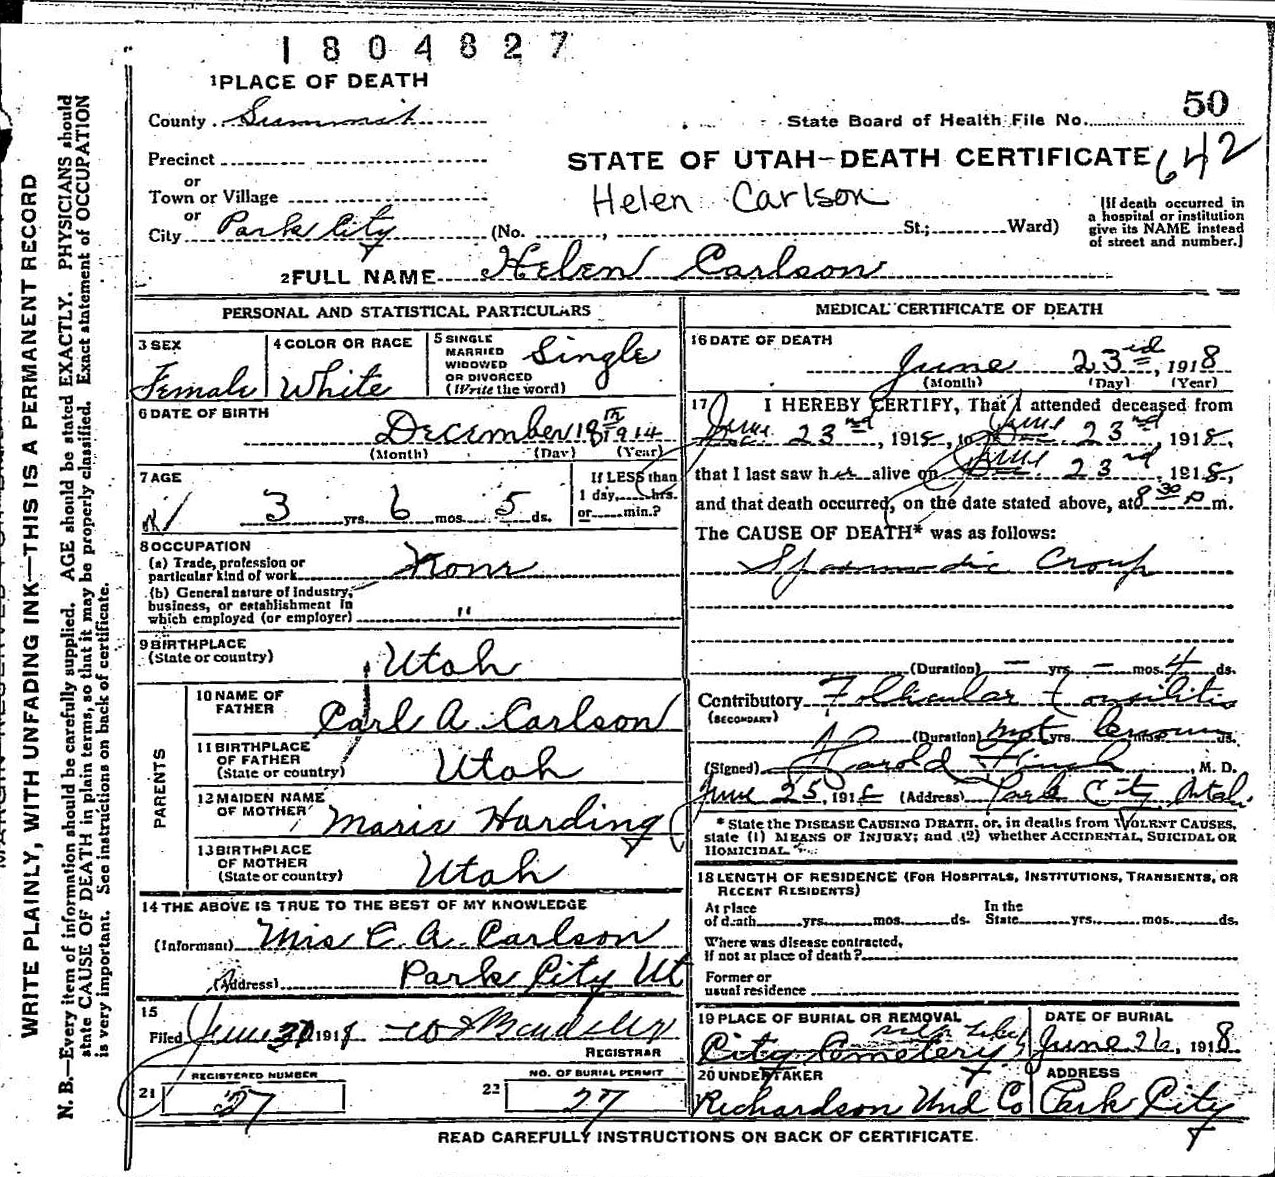 1804827
1 PLACE OF DEATH
County Summit
State Board of Health File No. 50
642
Precinct
STATE OF UTAH—DEATH CERTIFICATE
or
Town or Village
Helen Carlson
or
City Park City (No. , St.; Ward)
[If death occurred in
a hospital or institution
give its NAME instead
of street and number.]
2 FULL NAME Helen Carlson
PERSONAL AND STATISTICAL PARTICULARS
3 SEX
Female
4 COLOR OR RACE
White
5 SINGLE
MARRIED
WIDOWED
OR DIVORCED
(Write the word)
Single
6 DATE OF BIRTH
December 18th 1914
(Month) (Day) (Year)
7 AGE
3 yrs. 6 mos. 5 ds.
If LESS than
1 day, hrs.
or min.?
8 OCCUPATION
(a) Trade, profession or
particular kind of work None
(b) General nature of Industry,
business, or establishment in
which employed (or employer) "
9 BIRTHPLACE
(State or country) Utah
PARENTS
10 NAME OF
FATHER Carl A. Carlson
11 BIRTHPLACE
OF FATHER
(State or country) Utah
12 MAIDEN NAME
OF MOTHER Maria Harding
13 BIRTHPLACE
OF MOTHER
(State or country) Utah
14 THE ABOVE IS TRUE TO THE BEST OF MY KNOWLEDGE
(Informant) Mrs C. A. Carlson
(Address) Park City Ut
15
Filed June 1918
REGISTRAR
21 REGISTERED NUMBER
27
22 NO. OF BURIAL PERMIT
27
MEDICAL CERTIFICATE OF DEATH
16 DATE OF DEATH
June 23rd, 1918
(Month) (Day) (Year)
17 I HEREBY CERTIFY, That I attended deceased from
June 23rd, 1918, to June 23rd, 1918,
that I last saw her alive on June 23rd, 1918,
and that death occurred, on the date stated above, at 8 30 p m.
The CAUSE OF DEATH* was as follows:
Spasmodic Croup
(Duration) — yrs. — mos. 4 ds.
Contributory Follicular Tonsilitis
(SECONDARY)
(Duration) not known yrs. mos. ds.
(Signed) Harold , M. D.
June 25, 1918 (Address) Park City Utah
* State the DISEASE CAUSING DEATH, or, in deaths from VIOLENT CAUSES,
state (1) MEANS OF INJURY; and (2) whether ACCIDENTAL, SUICIDAL OR
HOMICIDAL.
18 LENGTH OF RESIDENCE (FOR HOSPITALS, INSTITUTIONS, TRANSIENTS, OR
RECENT RESIDENTS)
At place
of death yrs. mos. ds.
In the
State yrs. mos. ds.
Where was disease contracted,
If not at place of death?
Former or
usual residence
19 PLACE OF BURIAL OR REMOVAL
City Cemetery
DATE OF BURIAL
June 26, 1918
20 UNDERTAKER
Richardson Und Co
ADDRESS
Park City
READ CAREFULLY INSTRUCTIONS ON BACK OF CERTIFICATE.
WRITE PLAINLY, WITH UNFADING INK—THIS IS A PERMANENT RECORD
N. B.—Every item of information should be carefully supplied. AGE should be stated EXACTLY. PHYSICIANS should
state CAUSE OF DEATH in plain terms, so that it may be properly classified. Exact statement of OCCUPATION
is very important. See instructions on back of certificate.